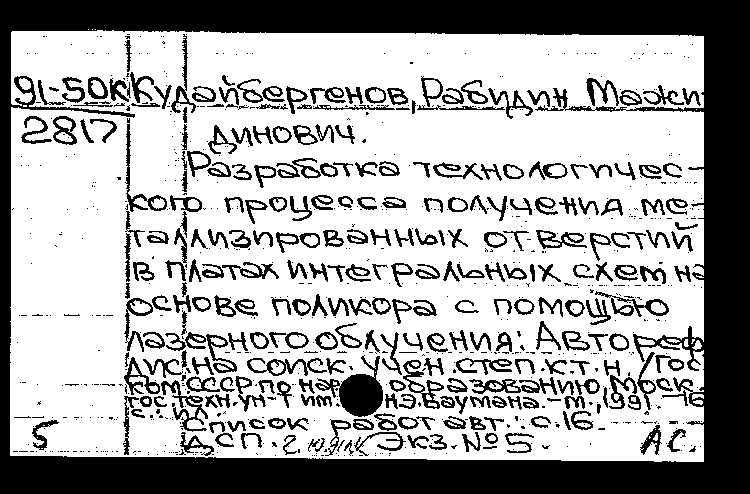 91-50к Кулайбергенов, Рабидин Мажи-
2817 динович.
Разработка технологичес-
кого процесса получения ме-
таллизированных отверстий
в платах интегральных схем на
основе поликора с помощью
лазерного облучения: Автореф
дис. на соиск. учен. степ. к.т.н. /Гос
ком СССР по нар образованию, Моск.
гос. техн. ун-т им. Н.Э. Баумана. -М., 1991. -16
с.: ил.
Список работ авт.: с.16.
5 ДСП. Экз. №5. АС.